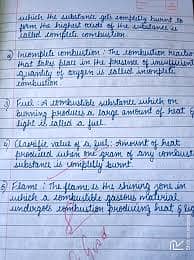 which the substance gets completely burnt to
form the highest oxide of the substance is
called complete combustion.
Incomplete combustion : The combustion reaction
that takes place in the presence of insufficient
quantity of oxygen is called incomplete
combustion.
3) Fuel : A combustible substance which on
burning produces a large amount of heat &
light is called a fuel.
4) Calorific value of a fuel : Amount of heat
produced when one gram of any combust
substance is completely burnt.
5) Flame : The flame is the shining zone in
which a combustible gaseous material
undergoes combustion producing heat & lig
Good